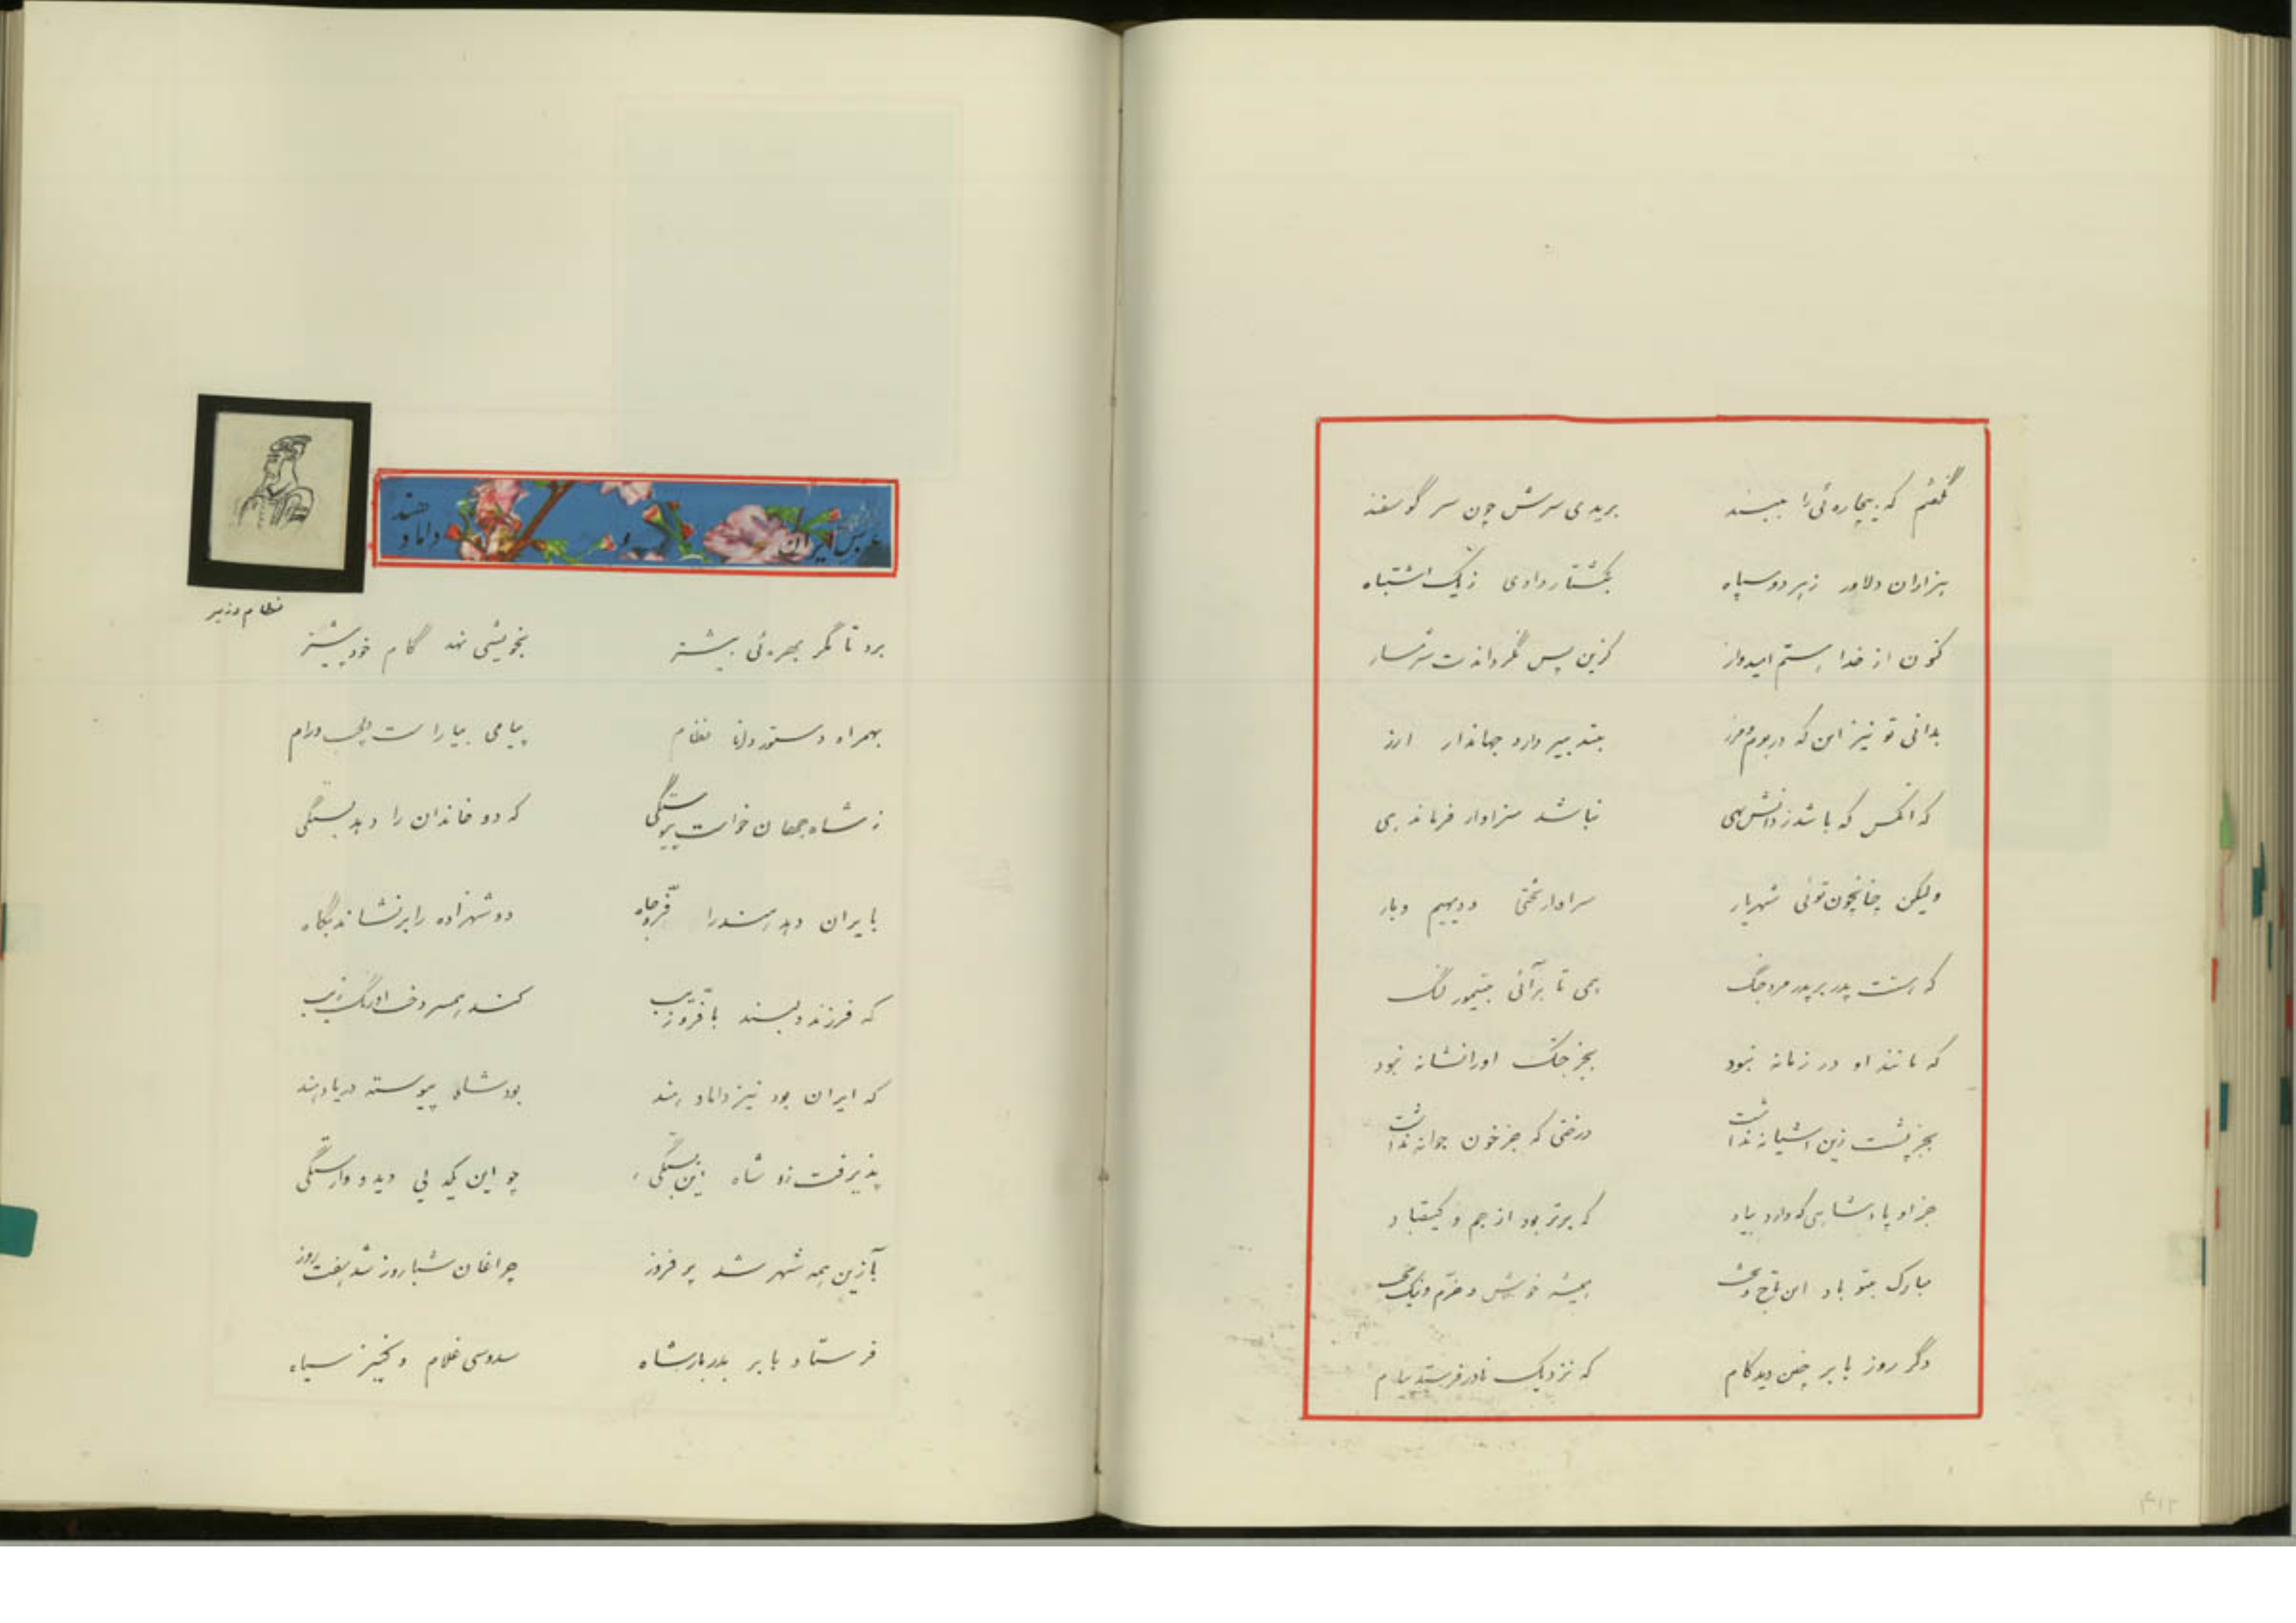 گفتم که بیچاره ئی را ببند بریدی سرش چون سر گوسفند
هزاران دلاور زهر دو سپاه بکشتار دادی ز یک اشتباه
کنون از خدا هستم امیدوار کزین پس نگرداندت شرمسار
بدانی تو نیز این که در بوم و مرز بتدبیر دارد جهاندار ارز
که آنکس که باشد ز دانش تهی نباشد سزاوار فرماندهی
ولیکن چنانچون توئی شهریار سزاوار تختی و دیهیم و بار
که هستت پدر بر پدر مرد جنگ همی تا برآئی بتیمور لنگ
که مانند او در زمانه نبود بجز جنگ او را نشانه نبود
بجز پشت زین آشیانه نداشت درختی که جز خون جوانه نداشت
جز او پادشاهی که دارد بیاد که برتر بود از جم و کیقباد
مبارک بتو باد این تاج و تخت همیشه خوش و خرّم و نیک بخت
دگر روز بابر چنین دید کام که نزدیک نادر فرستد پیام
۴۱۲
عروس ایران و داماد هند
نظام وزیر
برد تا مگر بهره ئی بیشتر بخویشی نهد گام خود پیشتر
بهمراه دستور دانا نظام پیامی بیاراست
ز شاه جهان خواست پیوستگی که دو خاندان را دهد بستگی
بایران دهد هند را فرّ و جاه دو شهزاده را بر نشاند بگاه
که فرزند دلبند با فرّ و زیب کند همسر دخت اورنگ زیب
که ایران بود نیز داماد هند بود شاه پیوسته در یاد هند
پذیرفت زو شاه این بستگی چو این یکدلی دید و وارستگی
بآزین همه شهر شد پر فروز چراغان شبا روز شد هفت روز
فرستاد بابر بدربار شاه سدوسی غلام و کنیز سیاه